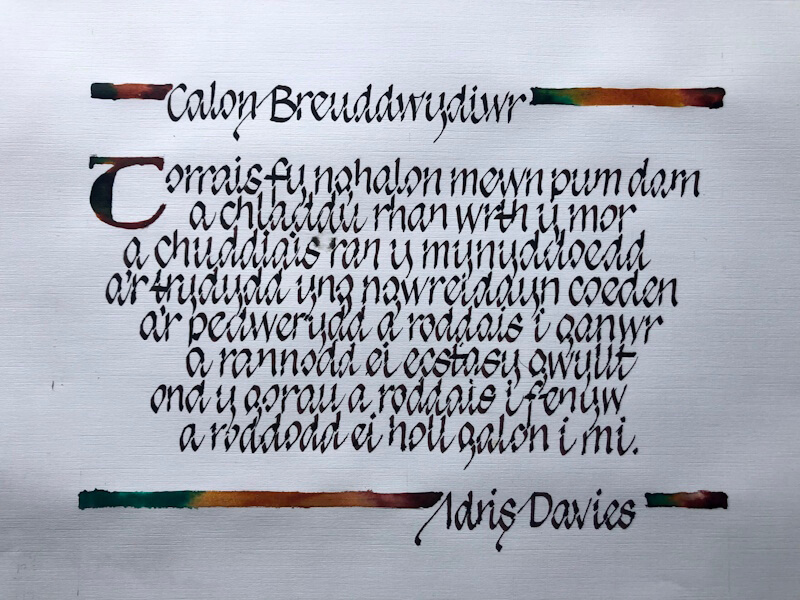 Calon Breuddwydiwr
Torrais fy nghalon mewn pum darn
a chladdu rhan wrth y mor
a chuddiais ran y mynyddoedd
a'r trydydd yng ngwreiddyn coeden
a'r pedwerydd a roddais i ganwr
a rannodd ei ecstasy gwyllt
ond y gorau a roddais i fenyw
a roddodd ei holl galon i mi.
Idris Davies